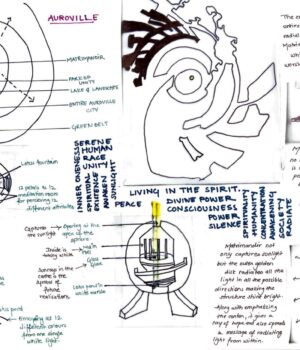 AUROVILLE
MATRIMANDIR
PARKED
UNITY
LAKE & LANDSCAPE
ENTIRE AUROVILLE
CITY
GREEN BELT
The
radial
Lotus fountain
12 petals as 12
meditation rooms
for perceiving 12
different attributes
INNER ONENESS
SPIRITUAL
EXISTENCE
AWAKEN
SUNLIGHT
SERENE
HUMAN
RACE
UNITY
LIVING IN THE SPIRIT.
PEACE
DIVINE POWER.
CONSCIOUSNESS
POWER
SILENCE
SPIRITUALITY
HUMANITY
CONCENTRATION
AWAKENING
SOCIETY
RADIATE
Captures
the sunlight
Opening at the
apex of the
sphere
Inside is
totally white
Main
Hall
Glass
globe
Sunrays in the
centre is the
symbol of
future
realisations.
Lotus pond in
white marble
Emerging as 12
different colours
from one single
white light.
Matrimandir not
only captures sunlight
but the outer golden
disk radiates all the
light in all the possible
directions making the
structure shine bright.
Along with emphasizing
the center, it gives a
ray of hope and also spreads
a message of radiating
light from within.